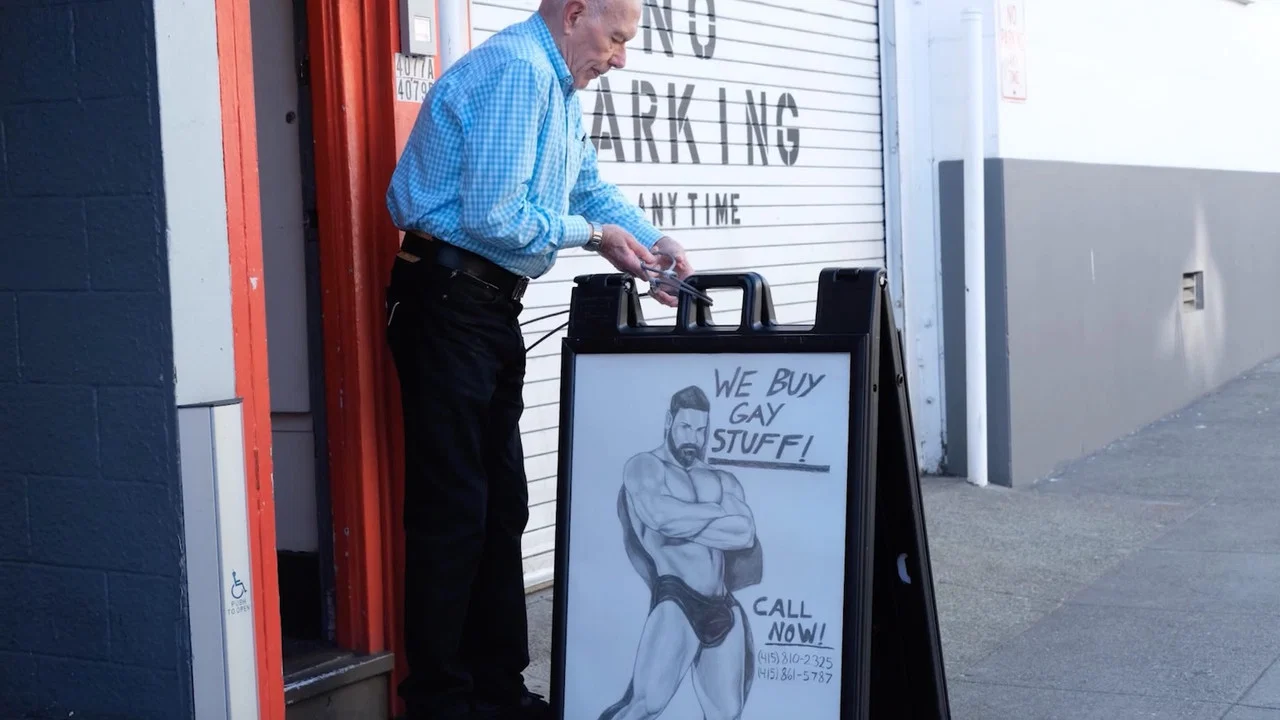 NO
ARKING
ANY TIME
4077A
4079
PUSH
TO OPEN
WE BUY
GAY
STUFF!
CALL
NOW!
(415)810-2325
(415)861-5787
NO